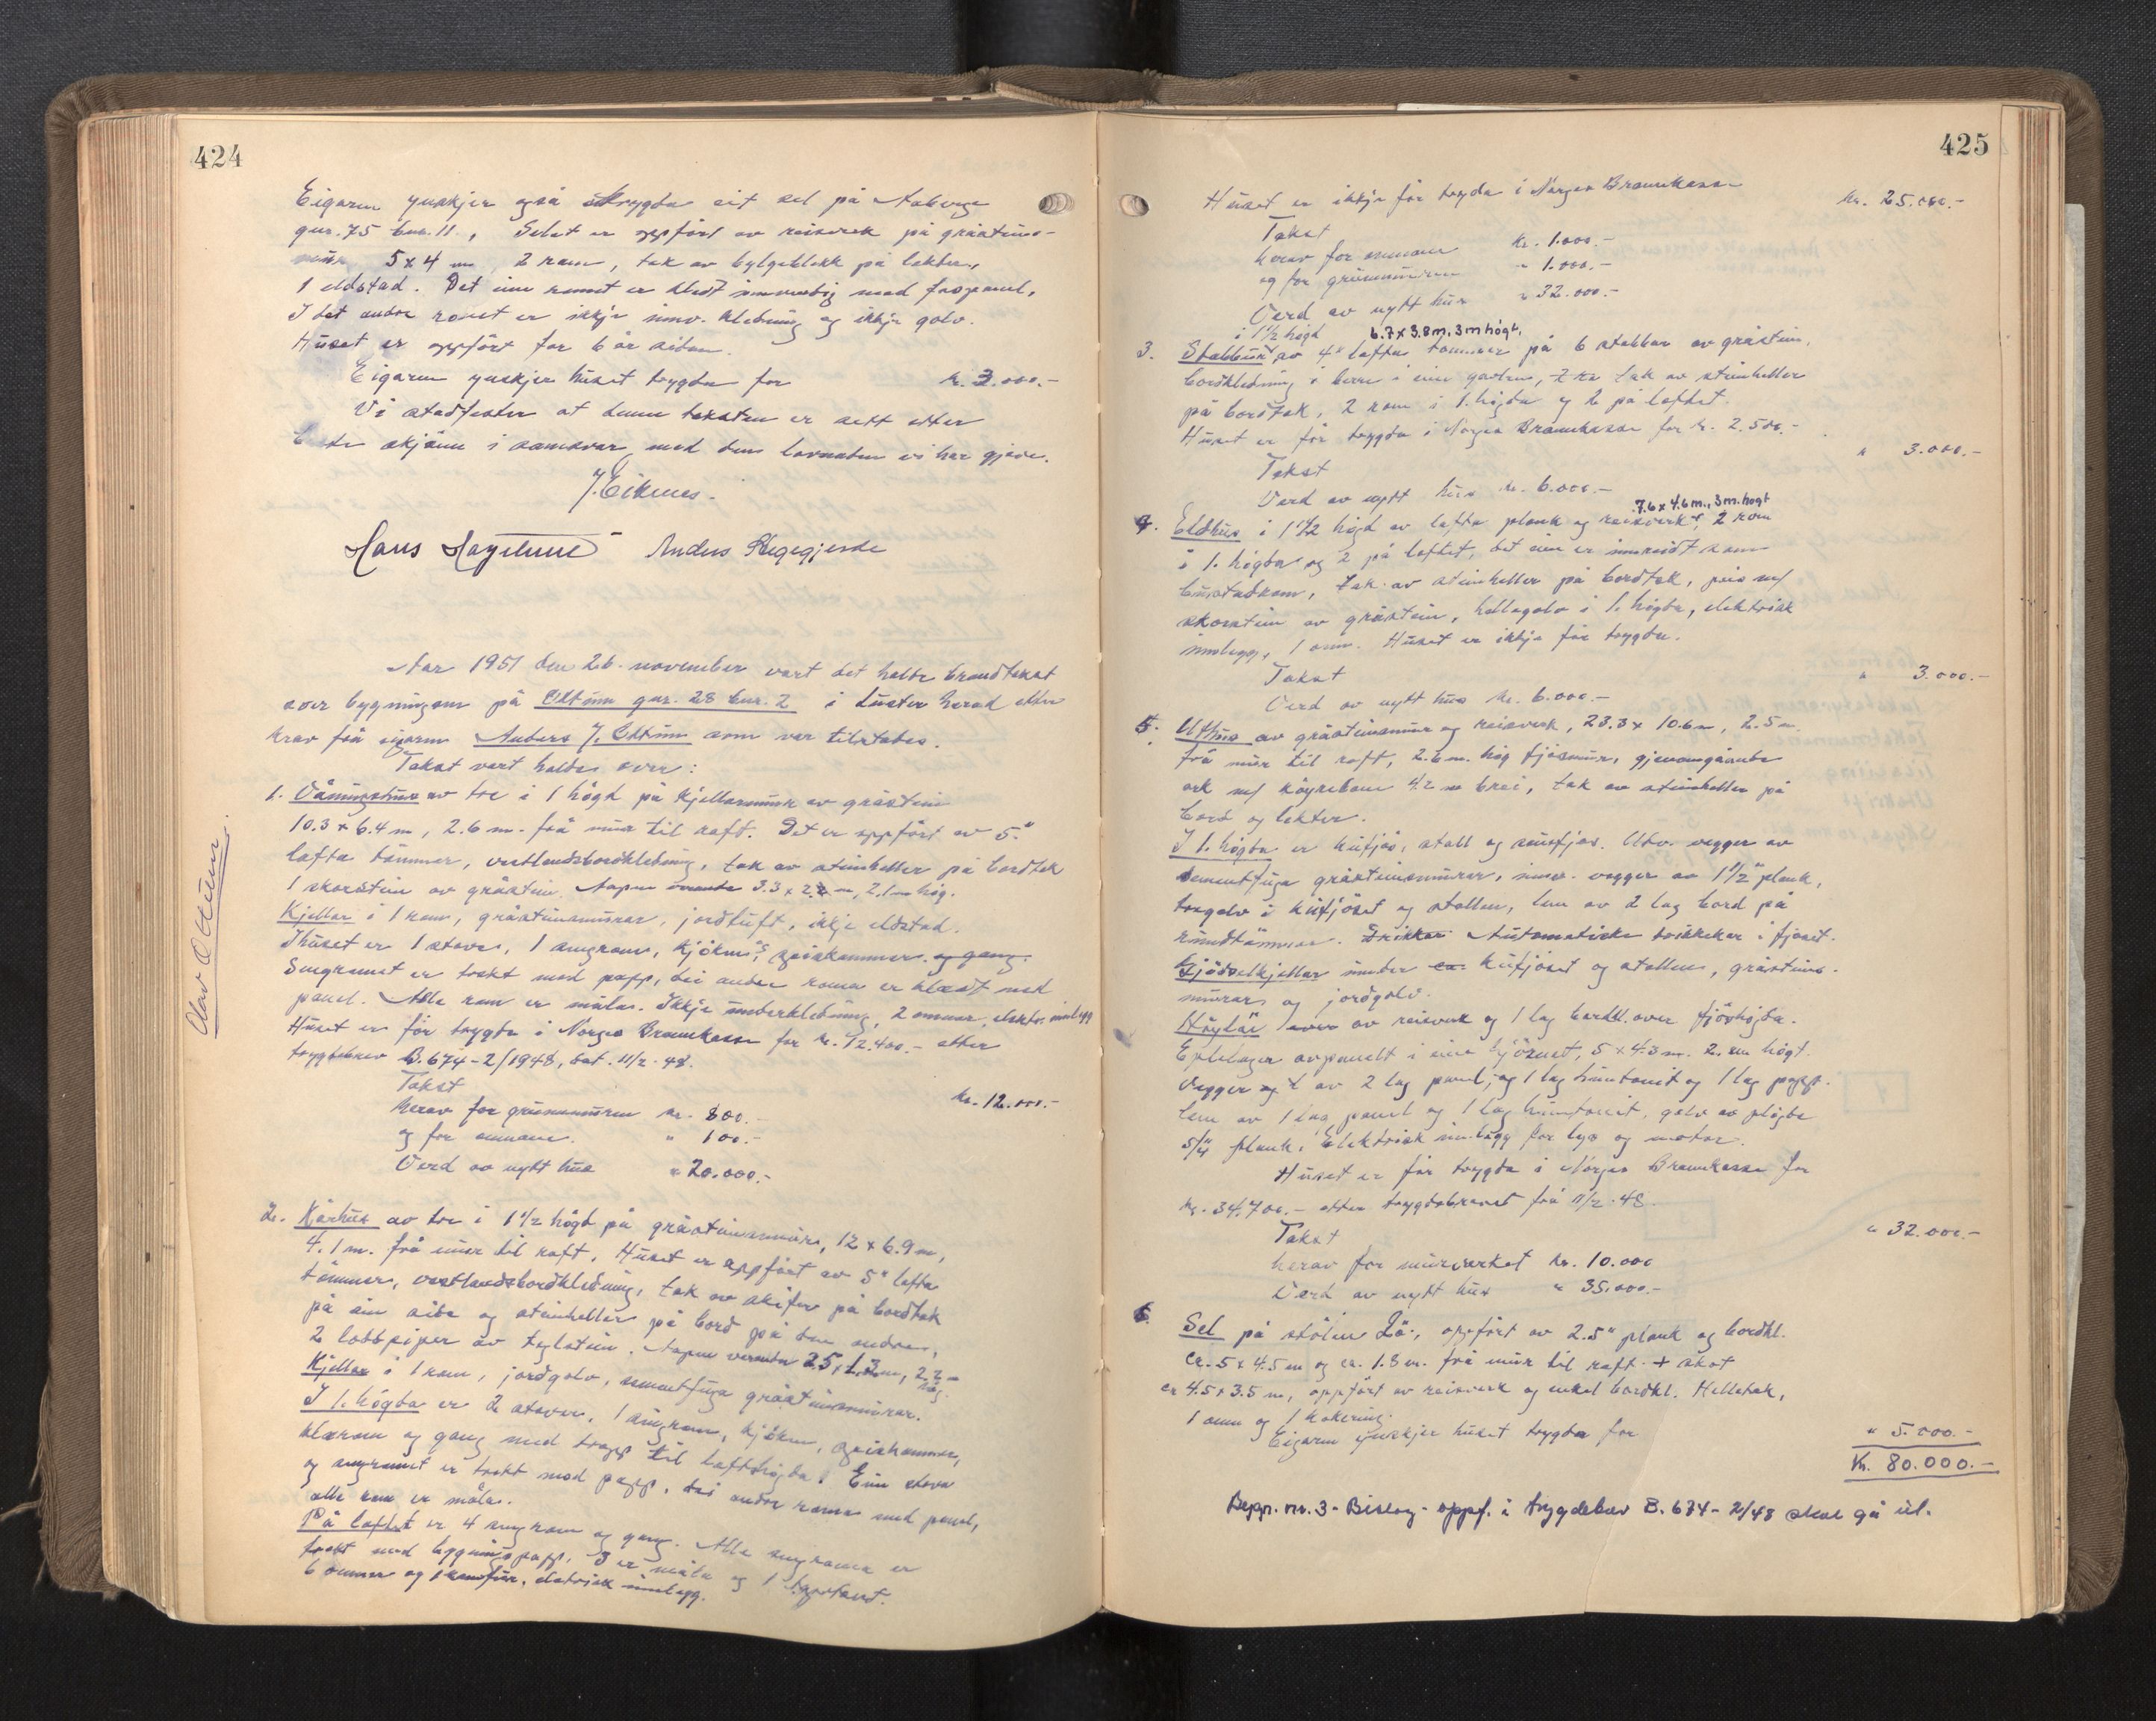 424
Eigaren ynskjer også trygda eit sel på Aaberge
gnr. 75 bnr. 11., Selet er oppført av reisverk på gråsteins-
mur 5x4 m, 2 rom, tak av bylgeblekk på lekter,
1 eldstad. Det eine romet er kledt innvendig med faspanel,
I det andre romet er ikkje innv. kledning og ikkje golv.
Huset er oppført for 6 år sidan.
Eigaren ynskjer huset trygda for kr. 3.000.-
Vi stadfester at denne taksten er sett etter
beste skjønn i samsvar med den lovnaden vi har gjeve.
J. Eiknes.
Hans Høyheim Anders Skjegjerde
Olav O Ottum.
Aar 1951 den 26. november vart det halde brandtakst
over bygningane på Ottum gnr. 28 bnr. 2 i Luster herad etter
krav frå eigaren Anders J. Ottum som var tilstades.
Takst vart halden over:
1. Våningshus av tre i 1 høgd på kjellarmur av gråstein
10.3 x 6.4 m, 2.6 m. frå mur til raft. Det er oppført av 5."
lafta tømmer, vestlandsbordkledning, tak av steinheller på bordtak
1 skorstein av gråstein. Aapen veranda 3.3 x 2.2 m, 2.1 m høg.
Kjellar i 1 rom, gråsteinsmurar, jordtuft, ikkje eldstad.
I huset er 1 stove, 1 sengrom, kjøken, spiskammer og gang.
Sengromet er trekt med papp, dei andre roma er kledt med
panel. Alle rom er måla. Ikkje underkledning, 2 omnar, elektr. innl. 49
Huset er før trygda i Norges Brannkasse for kr. 12.400.- etter
trygdebrev B.674-2/1948, dat. 11/2-48.
Takst kr. 12.000.-
herav for grunnmuren kr. 800.-
og for omnane. " 100.-
Verd av nytt hus " 20.000.-
2. Kårhus av tre i 1 1/2 høgd på gråsteinsmur, 12 x 6.9 m,
4.1 m. frå mur til raft. Huset er oppført av 5" lafta
tømmer, vestlandsbordkledning, tak av skifer på bordtak
på ein side og steinheller på bord på den andre,
2 lobbpiper av teglstein. Aapen veranda 2.5 x 1.3 m, 2.2 m
høg.
Kjellar i 1 rom, jordgolv, sementfuga gråsteinsmurar.
I 1. høgda er 2 stover, 1 sengrom, kjøken, spiskammer,
klerom og gang med trapp til loftshøgda. Eine stova
og sengromet er trekt med papp, dei andre roma med panel,
alle rom er måla.
På loftet er 4 sengrom og gang. Alle sengroma er
trekt med bygningspapp, 3 er måla og 1 tapetsert.
6 omnar og 1 komfyr, elektrisk innlegg.
425
Huset er ikkje før trygda i Norges Brannkasse
Takst kr. 25.000.-
herav for omnane kr. 1.000.-
og for grunnmuren " 1.000.-
Verd av nytt hus " 32.000.-
i 1 1/2 høgd 6.7 x 3.8 m, 3 m høgt.
3. Stabbur av 4" lafta tømmer på 6 stabbar av gråstein,
bordkledning i berre i eine gavlen, tak av steinheller
på bordtak, 2 rom i 1. høgda og 2 på loftet.
Huset er før trygda i Norges Brannkasse for kr. 2.500.-
Takst " 3.000.-
Verd av nytt hus kr. 6.000.-
7.6 x 4.6 m., 3 m. høgt
4. Eldhus i 1 1/2 høgd av lafta plank og reisverk, 2 rom
i 1. høgda og 2 på loftet, det eine er innreidt som
bustadrom, tak av steinheller på bordtak, peis m/
skorstein av gråstein, hellegolv i 1. høgda, elektrisk
innlegg, 1 omn. Huset er ikkje før trygda.
Takst " 3.000.-
Verd av nytt hus kr. 6.000.-
5. Uthus av gråsteinsmur og reisverk, 23.3 x 10.6 m, 2.5 m
frå mur til raft, 2.6 m. høg fjøsmur, gjenomgåande
ark m/ køyrebane 4.2 m brei, tak av steinheller på
bord og lekter.
I 1. høgda er kufjøs, stall og sauefjøs. Utv. vegger av
sementfuga gråsteinsmurar, innv. vegger av 1 1/2" plank,
tregolv i kufjøset og stallen, lem av 2 lag bord på
rundtømmer. Drikkar Automatiske drikkekar i fjøset.
Gjødselkjellar under kufjøset og stallen, gråsteins-
murar og jordgolv.
Høyløe over av reisverk og 1 lag bordkl. over fjøshøgda.
Eplelager avpanelt i eine hjørnet, 5 x 4.3 m. 2. m høgt.
Vegger av 2 lag panel, og 1 lag huntonit og 1 lag papp.
Lem av 1 lag panel og 1 lag huntonit, golv av pløgde
5/4" plank. Elektrisk innlegg for lys og motor.
Huset er før trygda i Norges Brannkasse for
kr. 34.700.- etter trygdebrevet frå 11/2-48.
Takst " 32.000.-
herav for murverket kr. 10.000
Verd av nytt hus " 35.000.-
6. Sel på stølen Lø., oppført av 2.5" plank og bordkl.
ca. 5 x 4.5 m og ca. 1.8 m. frå mur til raft + skot
ca 4.5 x 3.5 m, oppført av reisverk og enkel bordkl. Helletak,
1 omn og 1 kokering.
Eigaren ynskjer huset trygda for " 5.000.-
Kr. 80.000.-
Bygn. nr. 3 - Bislag - oppf. i trygdebrev B. 674-2/48 skal gå ut.